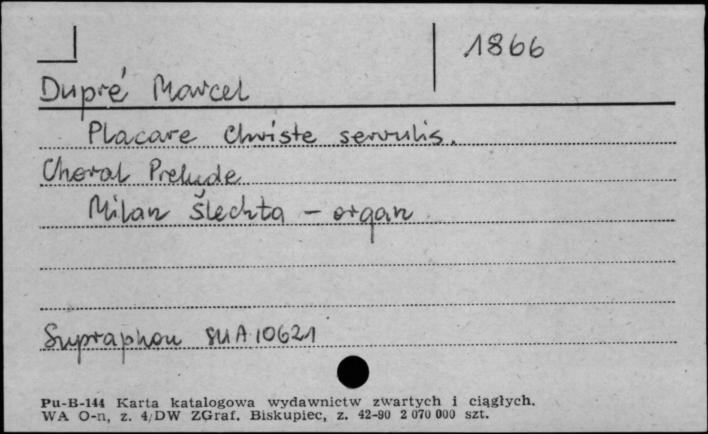 1866
Dupré Marcel
Placare Christe servulis.
Choral Prelude
Milan Šlechta – organ
Supraphon SUA 10621
Pu-B-144 Karta katalogowa wydawnictw zwartych i ciągłych.
WA O-n, z. 4/DW ZGraf. Biskupiec, z. 42-90 2 070 000 szt.